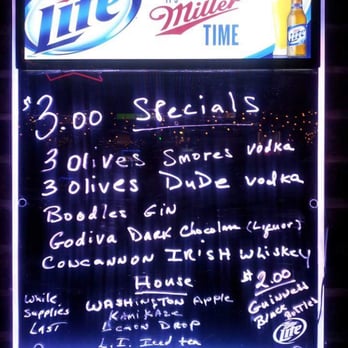 Lite
IT'S
Miller
TIME
Lite
$3.00 Specials
3 Olives Smores vodka
3 Olives DuDe vodka
Boodles Gin
Godiva DARK Chocolate (Liquor)
Concannon IRISH Whiskey
House
WASHINGTON Apple
KAMIKAZE
LEMON DROP
L.I. Iced tea
While
Supplies
LAST
$2.00
Guinness
Black
Bottles
Lite